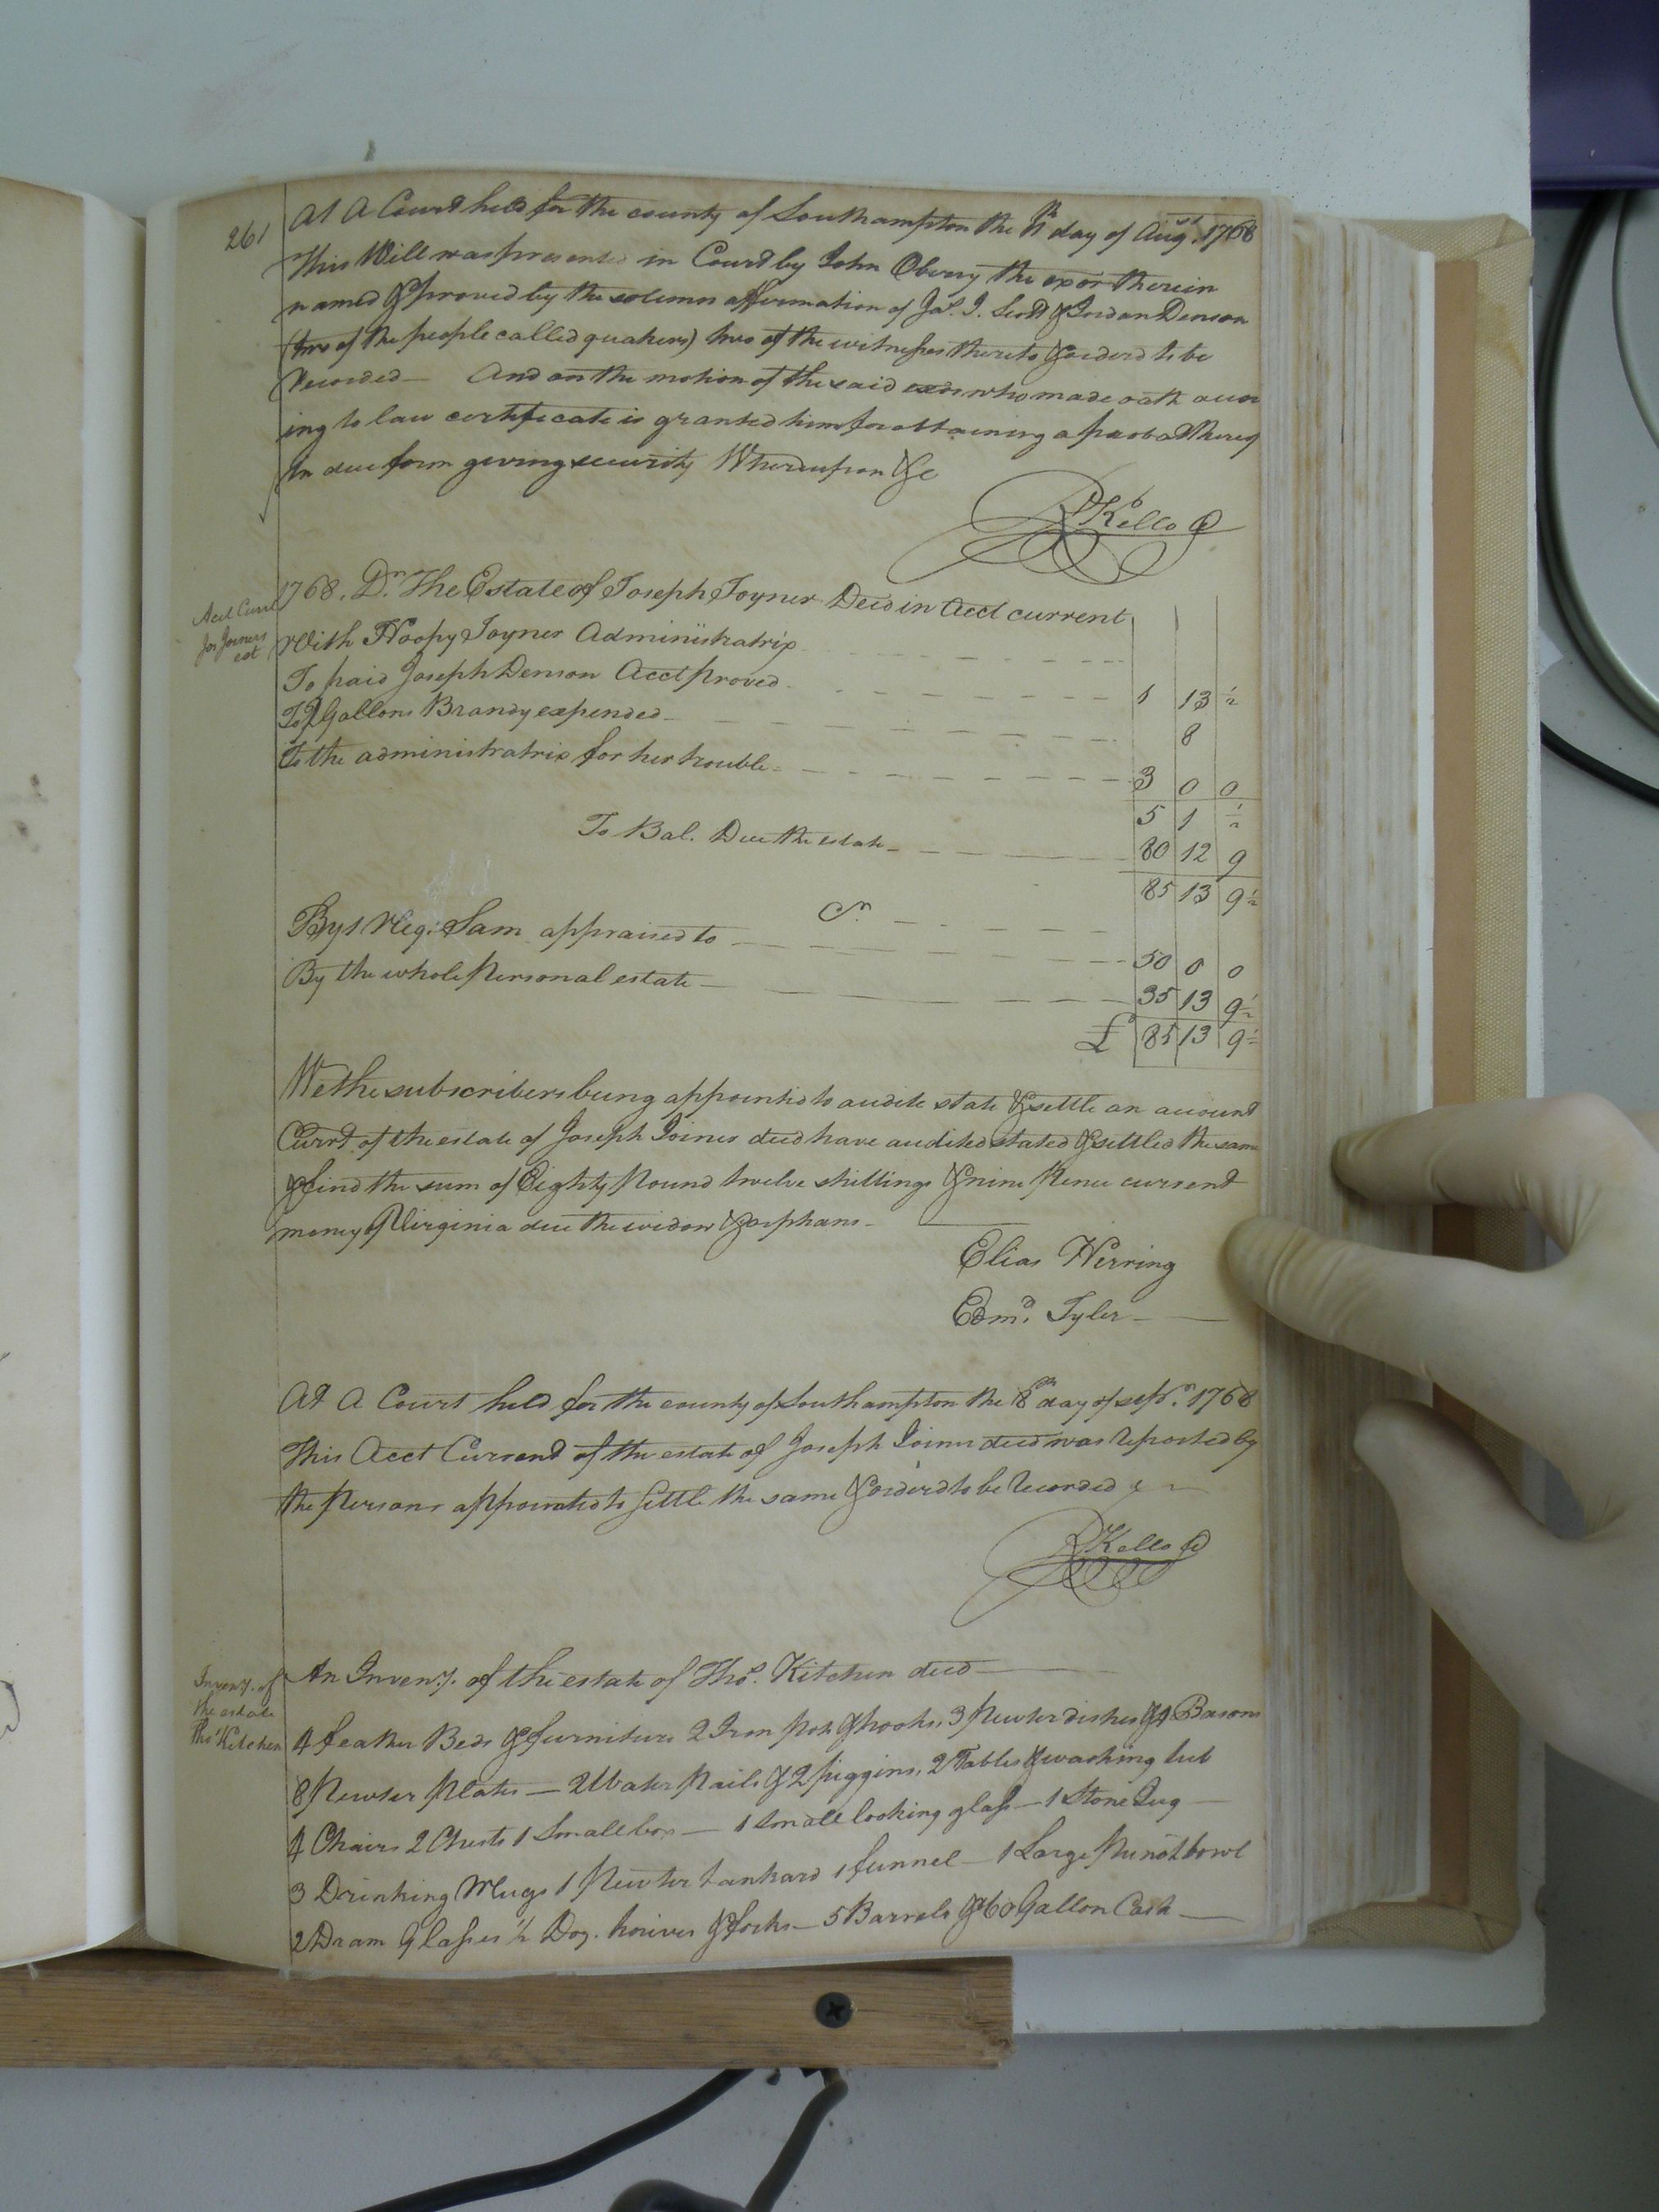 261
At A Court held for the county of Southampton the 11th day of Augst. 1768
This Will was presented in Court by John Obeny the exor therein
named & proved by the solemn affirmation of Jas. J. Scott & Jordan Denson
(two of the people called quakers) two of the witnesses thereto & orderd to be
Recorded — And on the motion of the said exor who made oath accor
ing to law certificate is granted him for obtaining a probat thereof
In due form giving security Whereupon &c
R Kello C
Acct Curt
Jos Joiners
est
1768. Dr. The Estate of Joseph Joyner Decd in Acct current
With Hoopy Joyner Administratrix
To paid Joseph Denson Acct proved 1 13 ½
To 2 Gallons Brandy expended 8
To the administratrix for her trouble 3 0 0
5 1 ½
To Bal. Due the estate 80 12 9
85 13 9½
Cr.
By 1 Neg: Sam appraised to 50 0 0
By the whole Personal estate 35 13 9½
£ 85 13 9½
We the subscribers being appointed to audite state & settle an account
Currt. of the estate of Joseph Joiner decd have audited stated & settled the same
& find the sum of Eighty Pound twelve shillings & nine Pence current
money of Virginia due the widow & orphans
Elias Herring
Edmd. Tyler
At A Court held for the county of Southampton the 8th day of septr. 1768
This Acct Current of the estate of Joseph Joiner decd was Reported by
the Persons appointed to settle the same & orderd to be Recorded
R Kello C
Inveny. of
the estate
Thos Kitchen
An Inveny. of the estate of Thos. Kitchen decd
4 feather Beds & furniture 2 Iron Pots & hooks, 3 Pewter dishes & 4 Basons
8 Pewter Plates — 2 Water Pails & 2 piggins, 2 Tables & washing tub
4 Chairs 2 Chests 1 Small box — 1 small looking glass — 1 Stone Jug —
3 Drinking Mugs 1 Pewter tankard 1 funnel — 1 Large Punch bowl
2 Dram Glasses ½ Doz. knives & forks — 5 Barrels & 60 Gallon Cask —